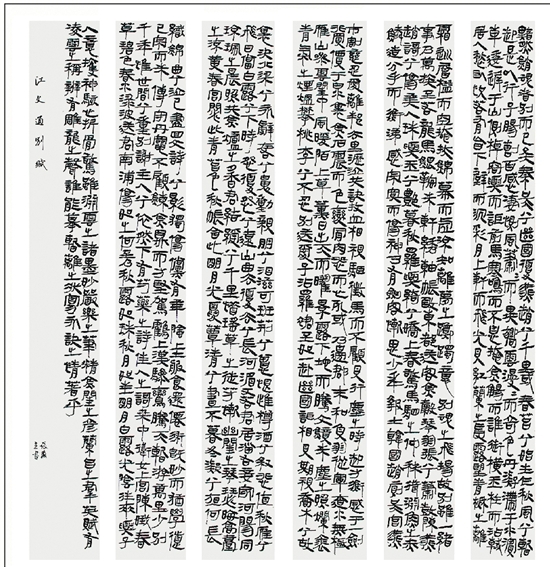 黯然銷魂者別而已矣況秦吳兮絕國復燕宋兮千里或春苔兮始生乍秋風兮蹔
起是以行子腸斷百感悽惻風蕭蕭而異響雲漫漫而奇色舟凝滯於水濱
車逶遲於山側櫂容與而詎前馬寒鳴而不息掩金觴而誰御橫玉柱而沾軾
居人愁臥怳若有亡日下壁而沉彩月上軒而飛光見紅蘭之受露望青楸之離
霜巡層楹而空掩撫錦幕而虛涼知離夢之躑躅意別魂之飛揚故別雖一緒
事乃萬族至若龍馬銀鞍朱軒繡軸帳飲東都送客金谷琴羽張兮簫鼓陳燕
趙歌兮傷美人珠與玉兮豔暮秋羅與綺兮嬌上春驚駟馬之仰秣聳淵魚之赤
鱗造分手而銜涕感寂寞而傷神乃有劍客慚恩少年報士韓國趙廁吳宮燕
市割慈忍愛離邦去里瀝泣共訣抆血相視驅征馬而不顧見行塵之時起方銜感於一劍
非買價於泉裏金石震而色變骨肉悲而心死或乃邊郡未和負羽從軍遼水無極
雁山參雲閨中風暖陌上草薰日出天而曜景露下地而騰文鏡朱塵之照爛襲
青氣之煙熅攀桃李兮不忍別送愛子兮沾羅裙至如一赴絕國詎相見期視喬木兮故
里決北梁兮永辭左右兮魂動親朋兮淚滋可班荊兮贈恨唯樽酒兮敘悲值秋雁兮
飛日當白露兮下時怨復怨兮遠山曲去復去兮長河湄又若君居淄右妾家河陽同
瓊珮之晨照共金爐之夕香君結綬兮千里惜瑤草之徒芳慚幽閨之琴瑟晦高臺
之流黃春宮閟此青苔色秋帳含此明月光夏簟清兮晝不暮冬釭凝兮夜何長
織錦曲兮泣已盡迴文詩兮影獨傷儻有華陰上士服食還仙術既妙而猶學道
已寂而未傳守丹竈而不顧鍊金鼎而方堅駕鶴上漢驂鸞騰天蹔遊萬里少別
千年惟世間兮重別謝主人兮依然下有芍藥之詩佳人之歌桑中衛女上宮陳娥春
草碧色春水淥波送君南浦傷如之何至乃秋露如珠秋月如珪明月白露光陰往來與子
凌雲之稱辯有雕龍之聲誰能摹暫離之狀寫永訣之情者乎
江文通別賦